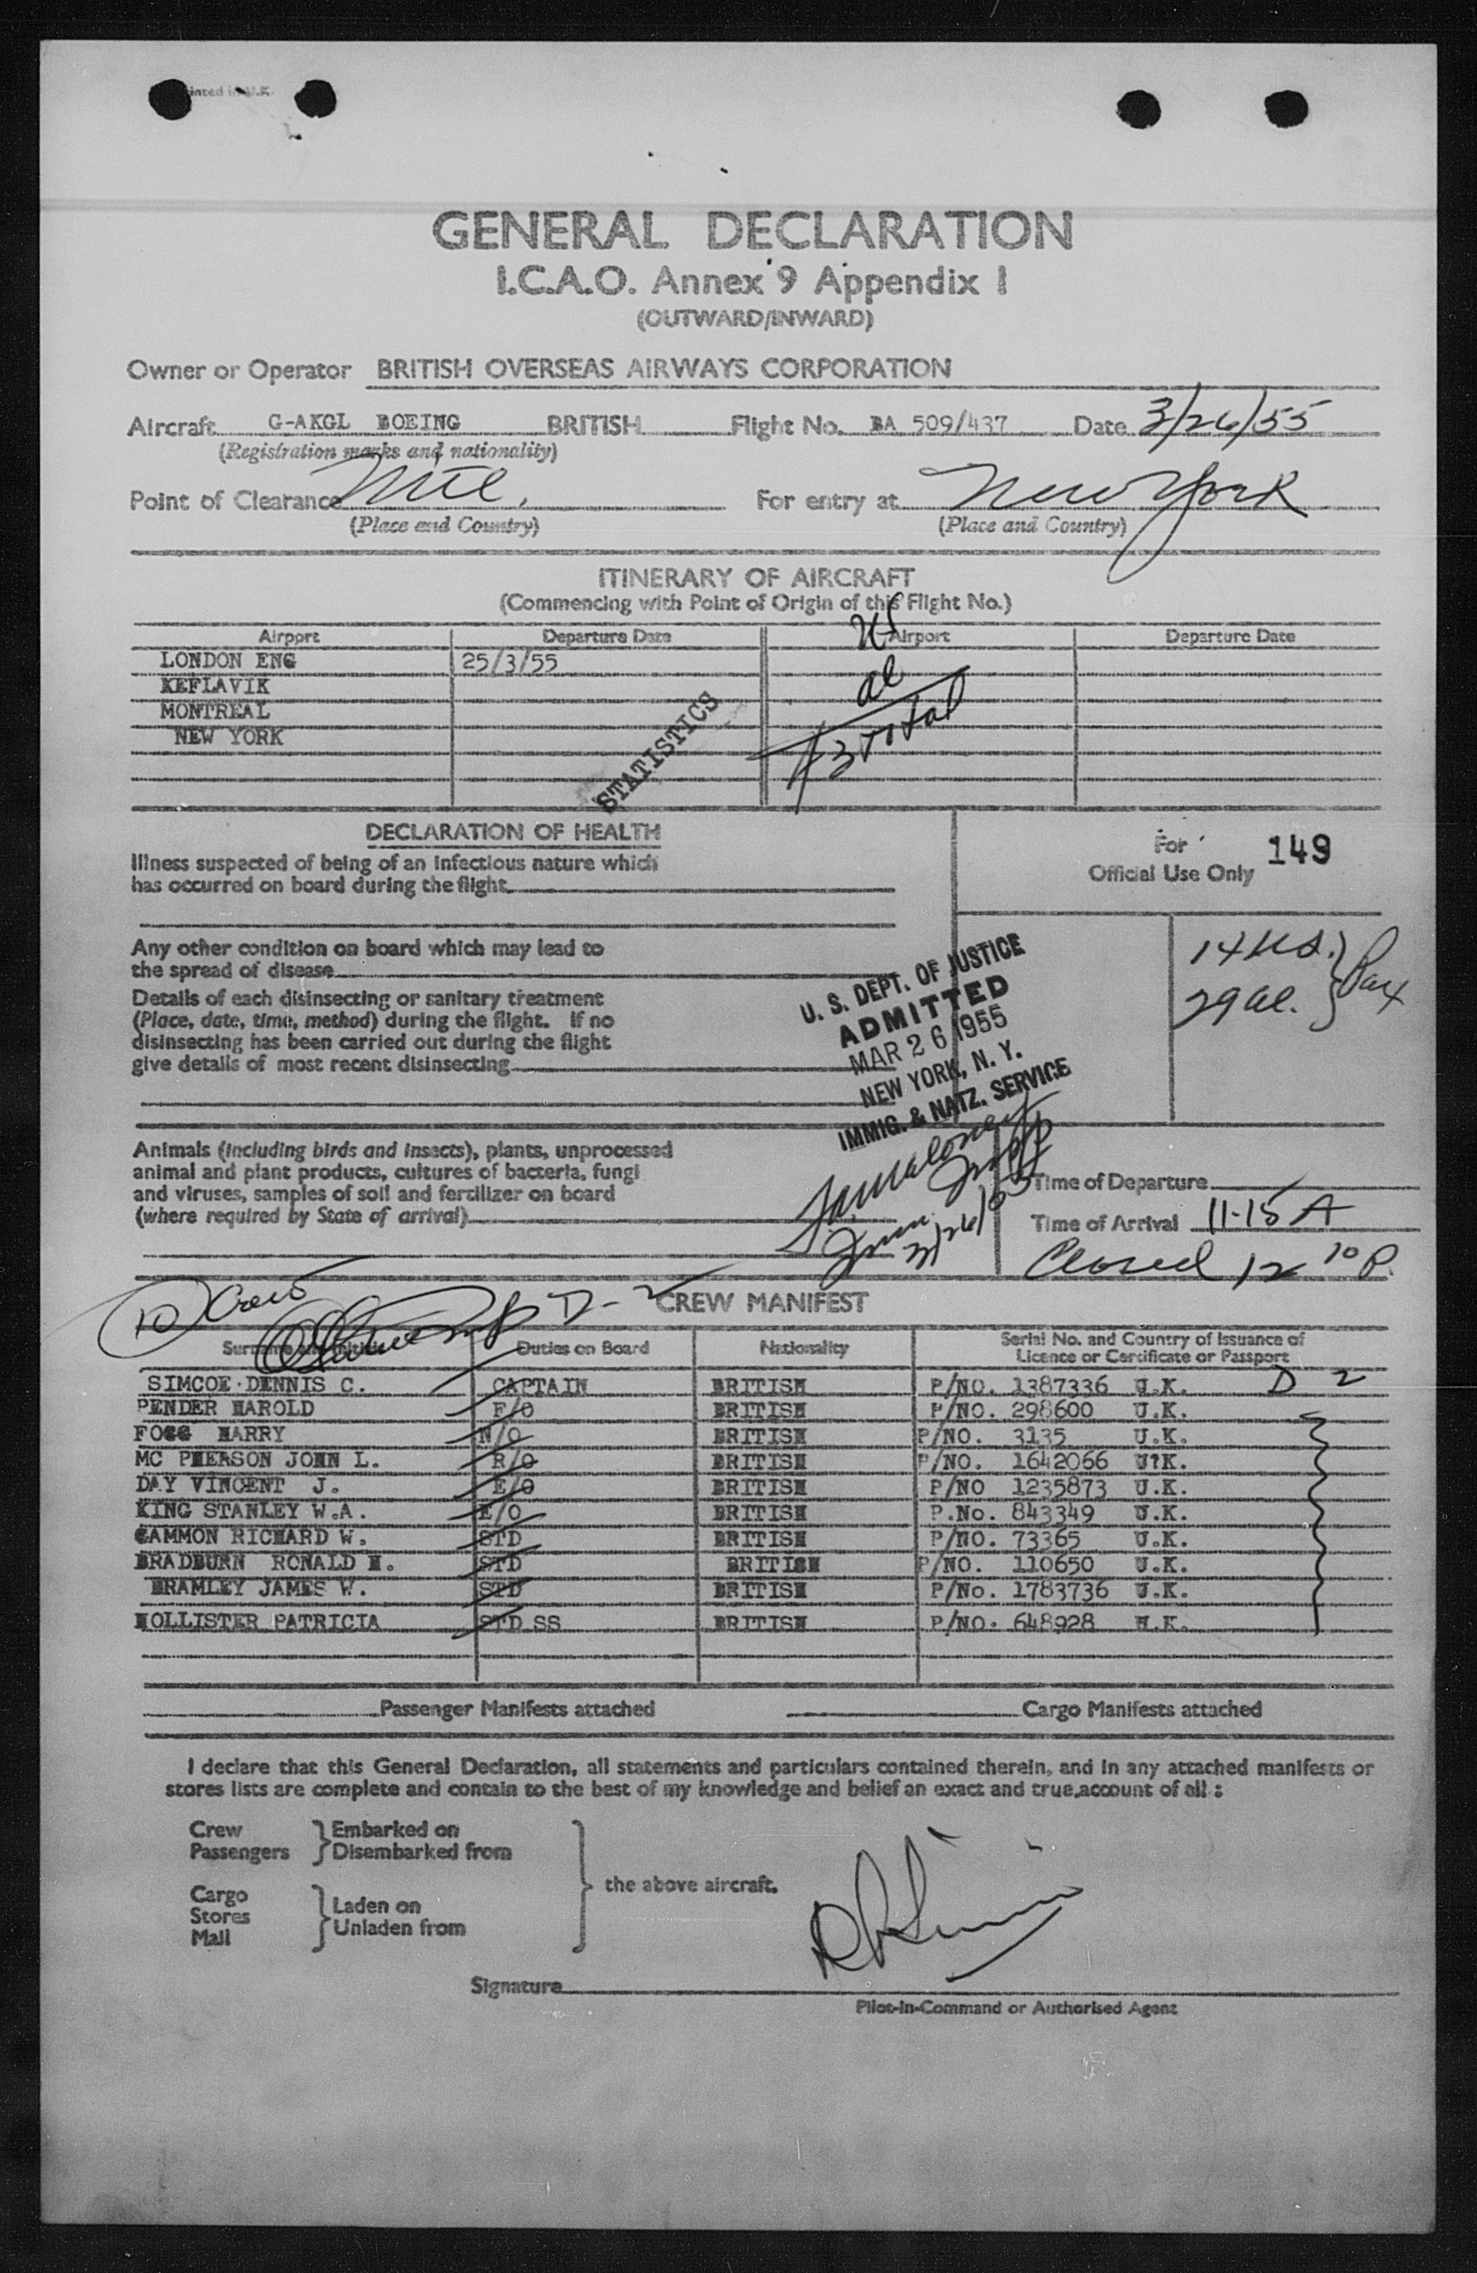 Printed in U.K.
GENERAL DECLARATION
I.C.A.O. Annex 9 Appendix I
(OUTWARD/INWARD)
Owner or Operator BRITISH OVERSEAS AIRWAYS CORPORATION
Aircraft G-AKGL BOEING BRITISH Flight No. BA 509/437 Date 3/26/55
(Registration marks and nationality)
Point of Clearance Mtl. For entry at New York
(Place and Country) (Place and Country)
ITINERARY OF AIRCRAFT
(Commencing with Point of Origin of this Flight No.)
US
Airport Departure Date Airport Departure Date
LONDON ENG 25/3/55
al
KEFLAVIK
MONTREAL
NEW YORK
total
STATISTICS
DECLARATION OF HEALTH
For Official Use Only 149
Illness suspected of being of an infectious nature which
has occurred on board during the flight
Any other condition on board which may lead to
the spread of disease
14 US. } Pax
29 al.
Details of each disinsecting or sanitary treatment
(Place, date, time, method) during the flight. If no
disinsecting has been carried out during the flight
give details of most recent disinsecting
U. S. DEPT. OF JUSTICE
ADMITTED
MAR 26 1955
NEW YORK, N. Y.
IMMIG. & NATZ. SERVICE
Animals (including birds and insects), plants, unprocessed
animal and plant products, cultures of bacteria, fungi
and viruses, samples of soil and fertilizer on board
(where required by State of arrival)
3/26/55
Time of Departure
Time of Arrival 11-15 A
Closed 12 10 P.
10 Crew D-2
CREW MANIFEST
Surname and Initials Duties on Board Nationality Serial No. and Country of Issuance of
Licence or Certificate or Passport
SIMCOE DENNIS C. CAPTAIN BRITISH P/NO. 1387336 U.K. D 2
PENDER HAROLD F/O BRITISH P/NO. 298600 U.K.
FOGG HARRY N/O BRITISH P/NO. 3135 U.K.
MC PHERSON JOHN L. R/O BRITISH P/NO. 1642066 U?K.
DAY VINCENT J. E/O BRITISH P/NO 1235873 U.K.
KING STANLEY W.A. E/O BRITISH P.No. 843349 U.K.
GAMMON RICHARD W. STD BRITISH P/NO. 73365 U.K.
BRADBURN RONALD H. STD BRITISH P/NO. 110650 U.K.
BRAMLEY JAMES W. STD BRITISH P/No. 1783736 U.K.
HOLLISTER PATRICIA STD SS BRITISH P/NO. 648928 U.K.
Passenger Manifests attached Cargo Manifests attached
I declare that this General Declaration, all statements and particulars contained therein, and in any attached manifests or
stores lists are complete and contain to the best of my knowledge and belief an exact and true account of all :
Crew } Embarked on
Passengers } Disembarked from
the above aircraft.
Cargo
Stores } Laden on
Mail } Unladen from
Signature
Pilot-in-Command or Authorised Agent